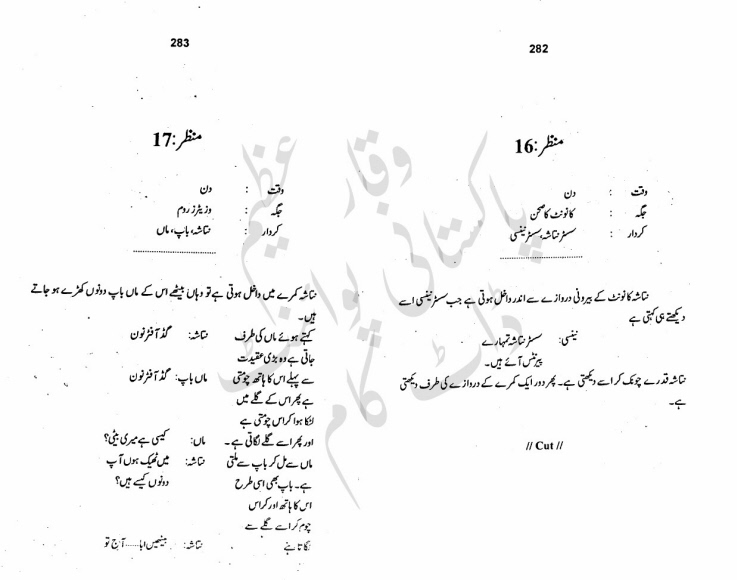 282
منظر:16
وقت : دن
جگہ : کانونٹ کا صحن
کردار : سسٹر نتاشہ، سسٹر نینسی
نتاشہ کانونٹ کے بیرونی دروازے سے اندر داخل ہوتی ہے جب سسٹر نینسی اسے
دیکھتے ہی کہتی ہے
نینسی: سسٹر نتاشہ تمہارے
پیرنٹس آئے ہیں۔
نتاشہ قدرے چونک کر اسے دیکھتی ہے۔ پھر دور ایک کمرے کے دروازے کی طرف دیکھتی
ہے۔
// Cut //
283
منظر:17
وقت : دن
جگہ : وزیٹرز روم
کردار : نتاشہ، باپ، ماں
نتاشہ کمرے میں داخل ہوتی ہے تو وہاں بیٹھے اس کے ماں باپ دونوں کھڑے ہو جاتے
ہیں۔
کہتے ہوئے ماں کی طرف نتاشہ: گڈ آفٹر نون
جاتی ہے وہ بڑی عقیدت
سے پہلے اس کا ہاتھ چومتی ماں باپ: گڈ آفٹر نون
ہے پھر اس کے گلے میں
لٹکا ہوا کراس چومتی ہے
اور پھر اسے گلے لگاتی ہے۔ ماں: کیسی ہے میری بیٹی؟
ماں سے مل کر باپ سے ملتی نتاشہ: میں ٹھیک ہوں آپ
ہے۔ باپ بھی اسی طرح دونوں کیسے ہیں؟
اس کا ہاتھ اور کراس
چوم کر اسے گلے سے
لگاتا ہے نتاشہ: بیٹھیں ابا......آج تو
پاکستانی پوائنٹ
ڈاٹ کام
وقار عظیم